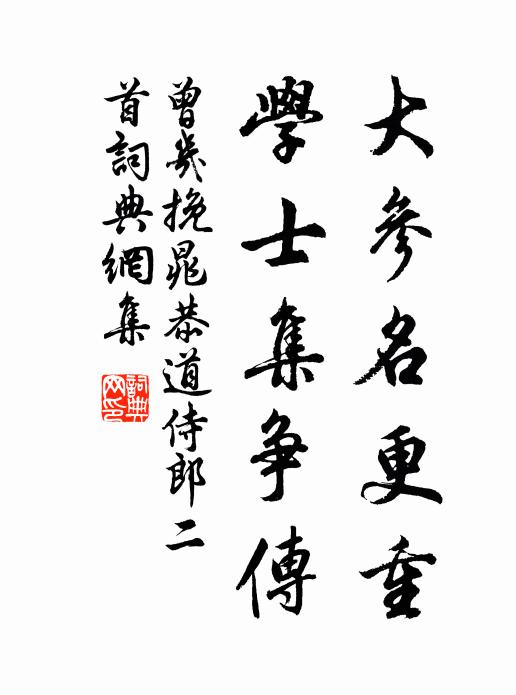 大參名更重
學士集爭傳
曾幾挽晁恭道侍郎二
首詞典網集
詞典网印